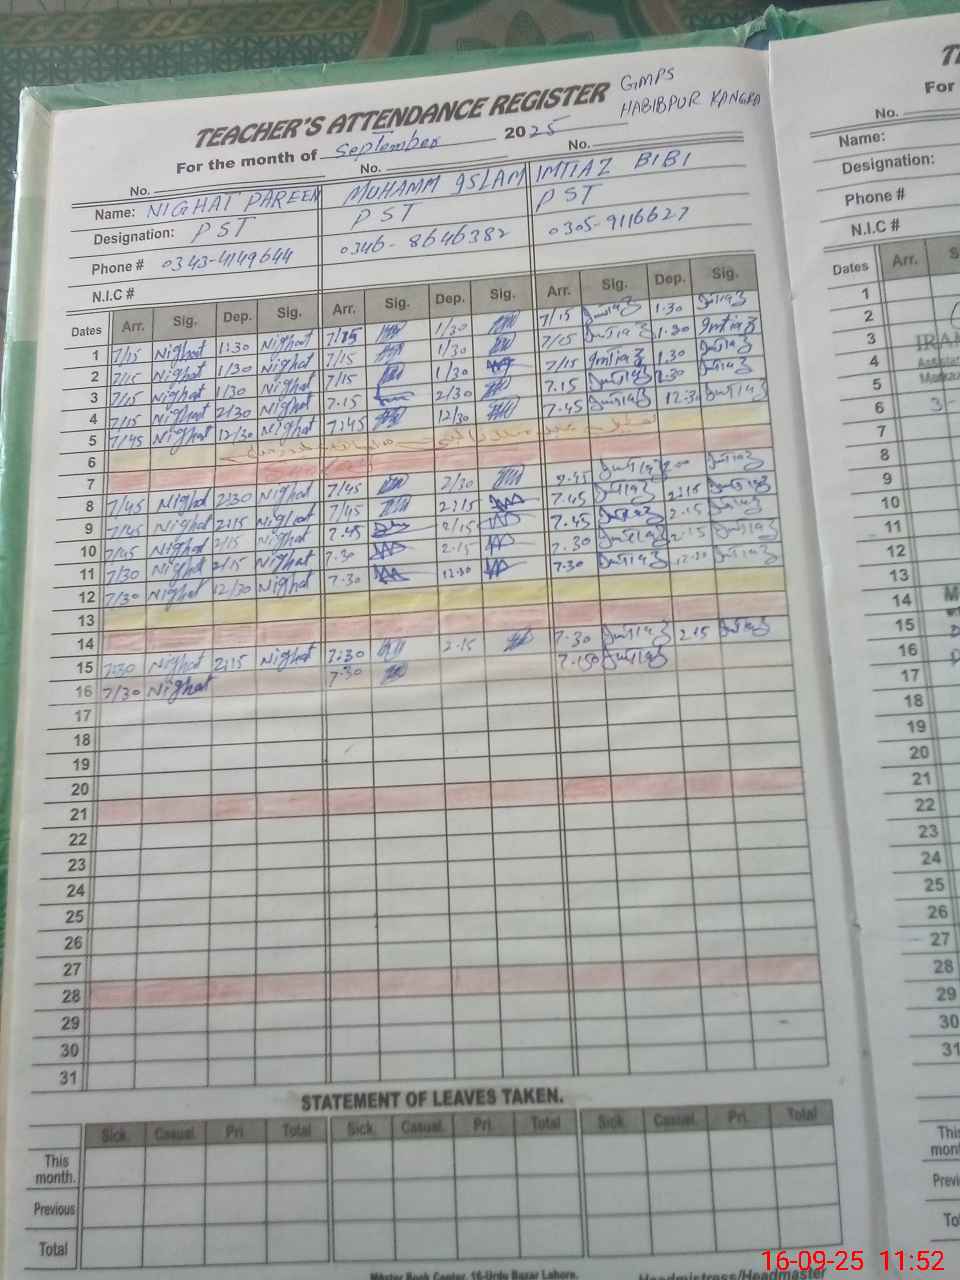 TEACHER'S ATTENDANCE REGISTER GMPS
HABIBPUR KANGRA
For the month of September 2025
No. No. No.
Name: NIGHAT PAREEN MUHAMM ASLAM IMTIAZ BIBI
Designation: PST PST PST
Phone # 0343-4149644 0346-8646382 0305-9116627
N.I.C #
Dates Arr. Sig. Dep. Sig. Arr. Sig. Dep. Sig. Arr. Sig. Dep. Sig.
1 7/15 Nighat 1:30 Nighat 7/15 1/30 7/15 Imtiaz 1.30 Imtiaz
2 7/15 Nighat 1/30 Nighat 7/15 1/30 7/15 Imtiaz 1.30 Imtiaz
3 7/15 Nighat 1/30 Nighat 7/15 1/30 7/15 Imtiaz 1.30 Imtiaz
4 7/15 Nighat 2/30 Nighat 7.15 2/30 7.15 Imtiaz 2.30 Imtiaz
5 7/45 Nighat 12/30 Nighat 7:45 12/30 7.45 Imtiaz 12.30 Imtiaz
6
7
8 7/45 Nighat 2:30 Nighat 7/45 2/30 7.45 Imtiaz Imtiaz
9 7/45 Nighat 2:15 Nighat 7/45 2:15 7.45 Imtiaz 2:15 Imtiaz
10 7/45 Nighat 2/15 Nighat 7.45 2/15 7.45 Imtiaz 2.15 Imtiaz
11 7/30 Nighat 2/15 Nighat 7.30 2.15 7.30 Imtiaz 2.15 Imtiaz
12 7/30 Nighat 12/30 Nighat 7.30 12.30 7.30 Imtiaz 12.30 Imtiaz
13
14
15 7:30 Nighat 2:15 Nighat 7:30 2.15 7.30 Imtiaz 2.15 Imtiaz
16 7/30 Nighat 7.30 7.150 Imtiaz
17
18
19
20
21
22
23
24
25
26
27
28
29
30
31
STATEMENT OF LEAVES TAKEN.
Sick. Casual. Pri. Total Sick. Casual. Pri. Total Sick. Casual. Pri. Total
This month.
Previous
Total
Master Book Center, 16-Urdu Bazar Lahore. Headmistress/Headmaster
For
No.
Name:
Designation:
Phone #
N.I.C #
Dates Arr.
1
2
3
4
5
6 3-
7
8
9
10
11
12
13
14
15
16
17
18
19
20
21
22
23
24
25
26
27
28
29
30
31
16-09-25 11:52